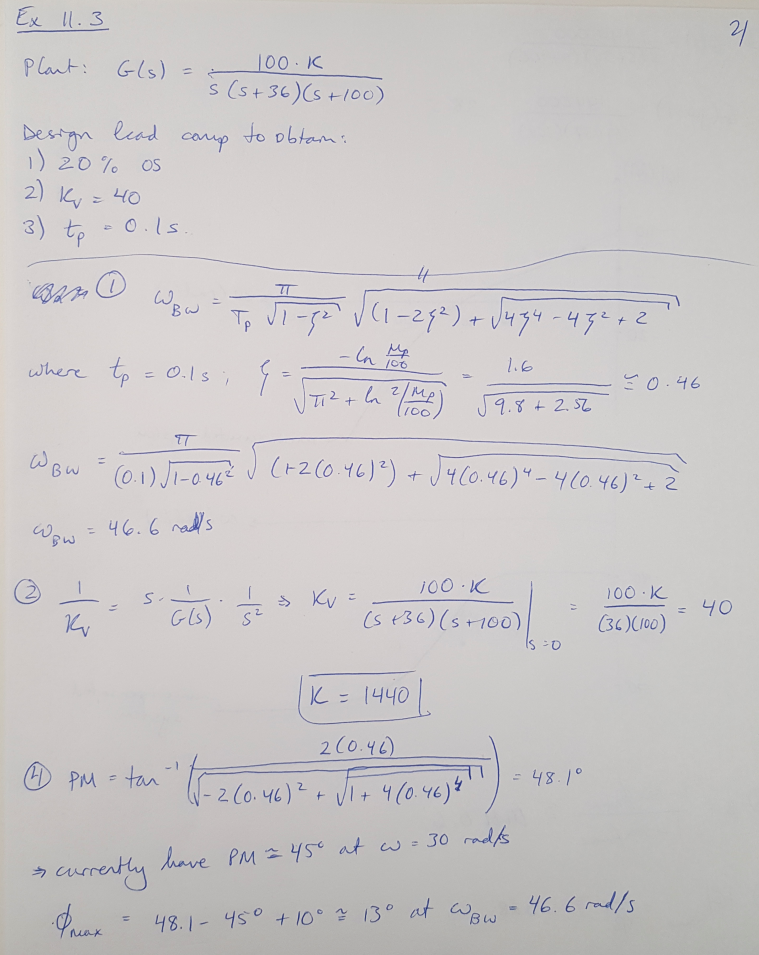 Ex 11.3
2/
Plant: G(s) = 100·K / s(s+36)(s+100)
Design lead comp to obtain:
1) 20% OS
2) Kv = 40
3) tp = 0.1s.
① ωBW = π / (Tp √(1-ζ²)) √((1-2ζ²) + √(4ζ⁴-4ζ²+2))
where tp = 0.1s ; ζ = -ln(Mp/100) / √(π² + ln²(Mp/100)) = 1.6 / √(9.8 + 2.56) ≅ 0.46
ωBW = π / ((0.1)√(1-0.46²)) √((1-2(0.46)²) + √(4(0.46)⁴ - 4(0.46)² + 2))
ωBW = 46.6 rad/s
② 1/Kv = s · 1/G(s) · 1/s² ⇒ Kv = 100·K / (s+36)(s+100) |s=0 = 100·K / (36)(100) = 40
K = 1440
④ PM = tan⁻¹(2(0.46) / √(-2(0.46)² + √(1 + 4(0.46)⁴))) = 48.1°
⇒ currently have PM ≅ 45° at ω = 30 rad/s
ϕmax = 48.1 - 45° + 10° ≅ 13° at ωBW = 46.6 rad/s